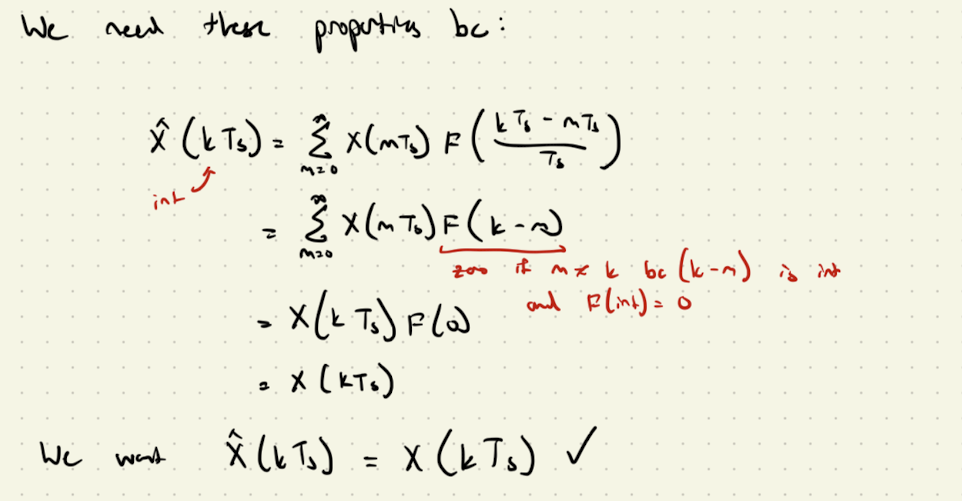 We need these properties bc:
X̂(kTs) = ∞Σm=0 X(mTs) F((kTs - mTs)/Ts)
int
= ∞Σm=0 X(mTs) F(k-m)
zero if m≠k bc (k-m) is int
and F(int) = 0
= X(kTs) F(0)
= X(kTs)
We want X̂(kTs) = X(kTs) ✓